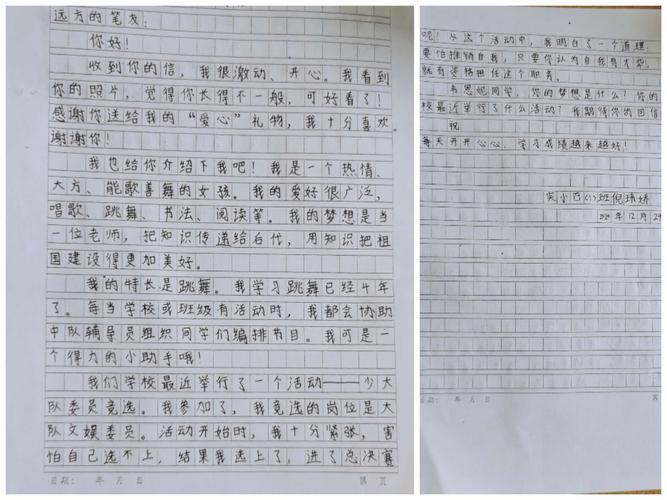 远方的笔友：
你好！
收到你的信，我很激动、开心。我看到
你的照片，觉得你长得不一般，可好看了！
感谢你送给我的“爱心”礼物，我十分喜欢
谢谢你！
我也给你介绍下我吧！我是一个热情、
大方、能歌善舞的女孩。我的爱好很广泛，
唱歌、跳舞、书法、阅读笔。我的梦想是当
一位老师，把知识传递给后代，用知识把祖
国建设得更加美好。
我的特长是跳舞。我学习跳舞已经4年
了。每当学校或班级有活动时，我都会协助
中队辅导员组织同学们编排节目。我可是一
个得力的小助手哦！
我们学校最近举行了一个活动——少大
队委员竞选。我参加了，我竞选的岗位是大
队文娱委员。活动开始时，我十分紧张，害
怕自己选不上，结果我选上了，进了总决赛
日期： 年 月 日 第 页
呢！从这个活动中，我明白了一个道理
要怕推销自我，只要你认为自我有才
就有资格担任这个职务。
韦恩妮同学，你的梦想是什么？你的
校最近举行了什么活动？我期待你的回信
祝
每天开开心心，学习成绩越来越好！
实小四(1)班倪
年12月29
日期： 年 月 日